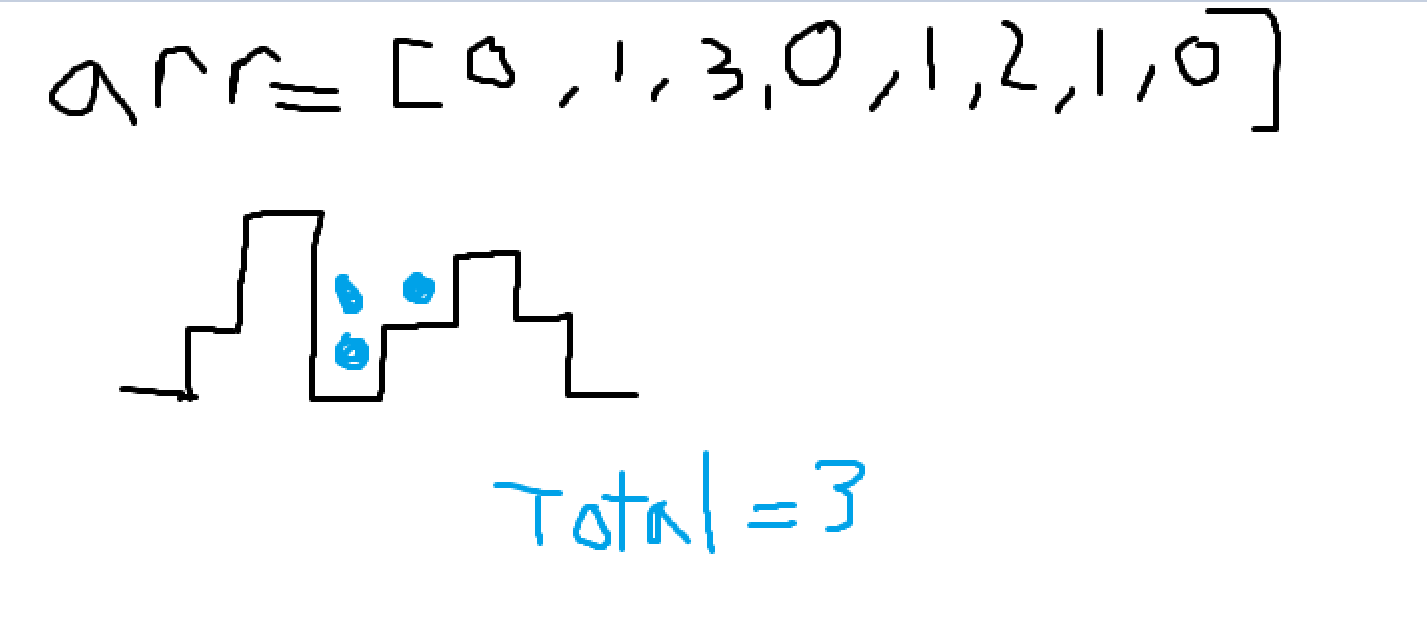 arr= [0,1,3,0,1,2,1,0]
Total = 3